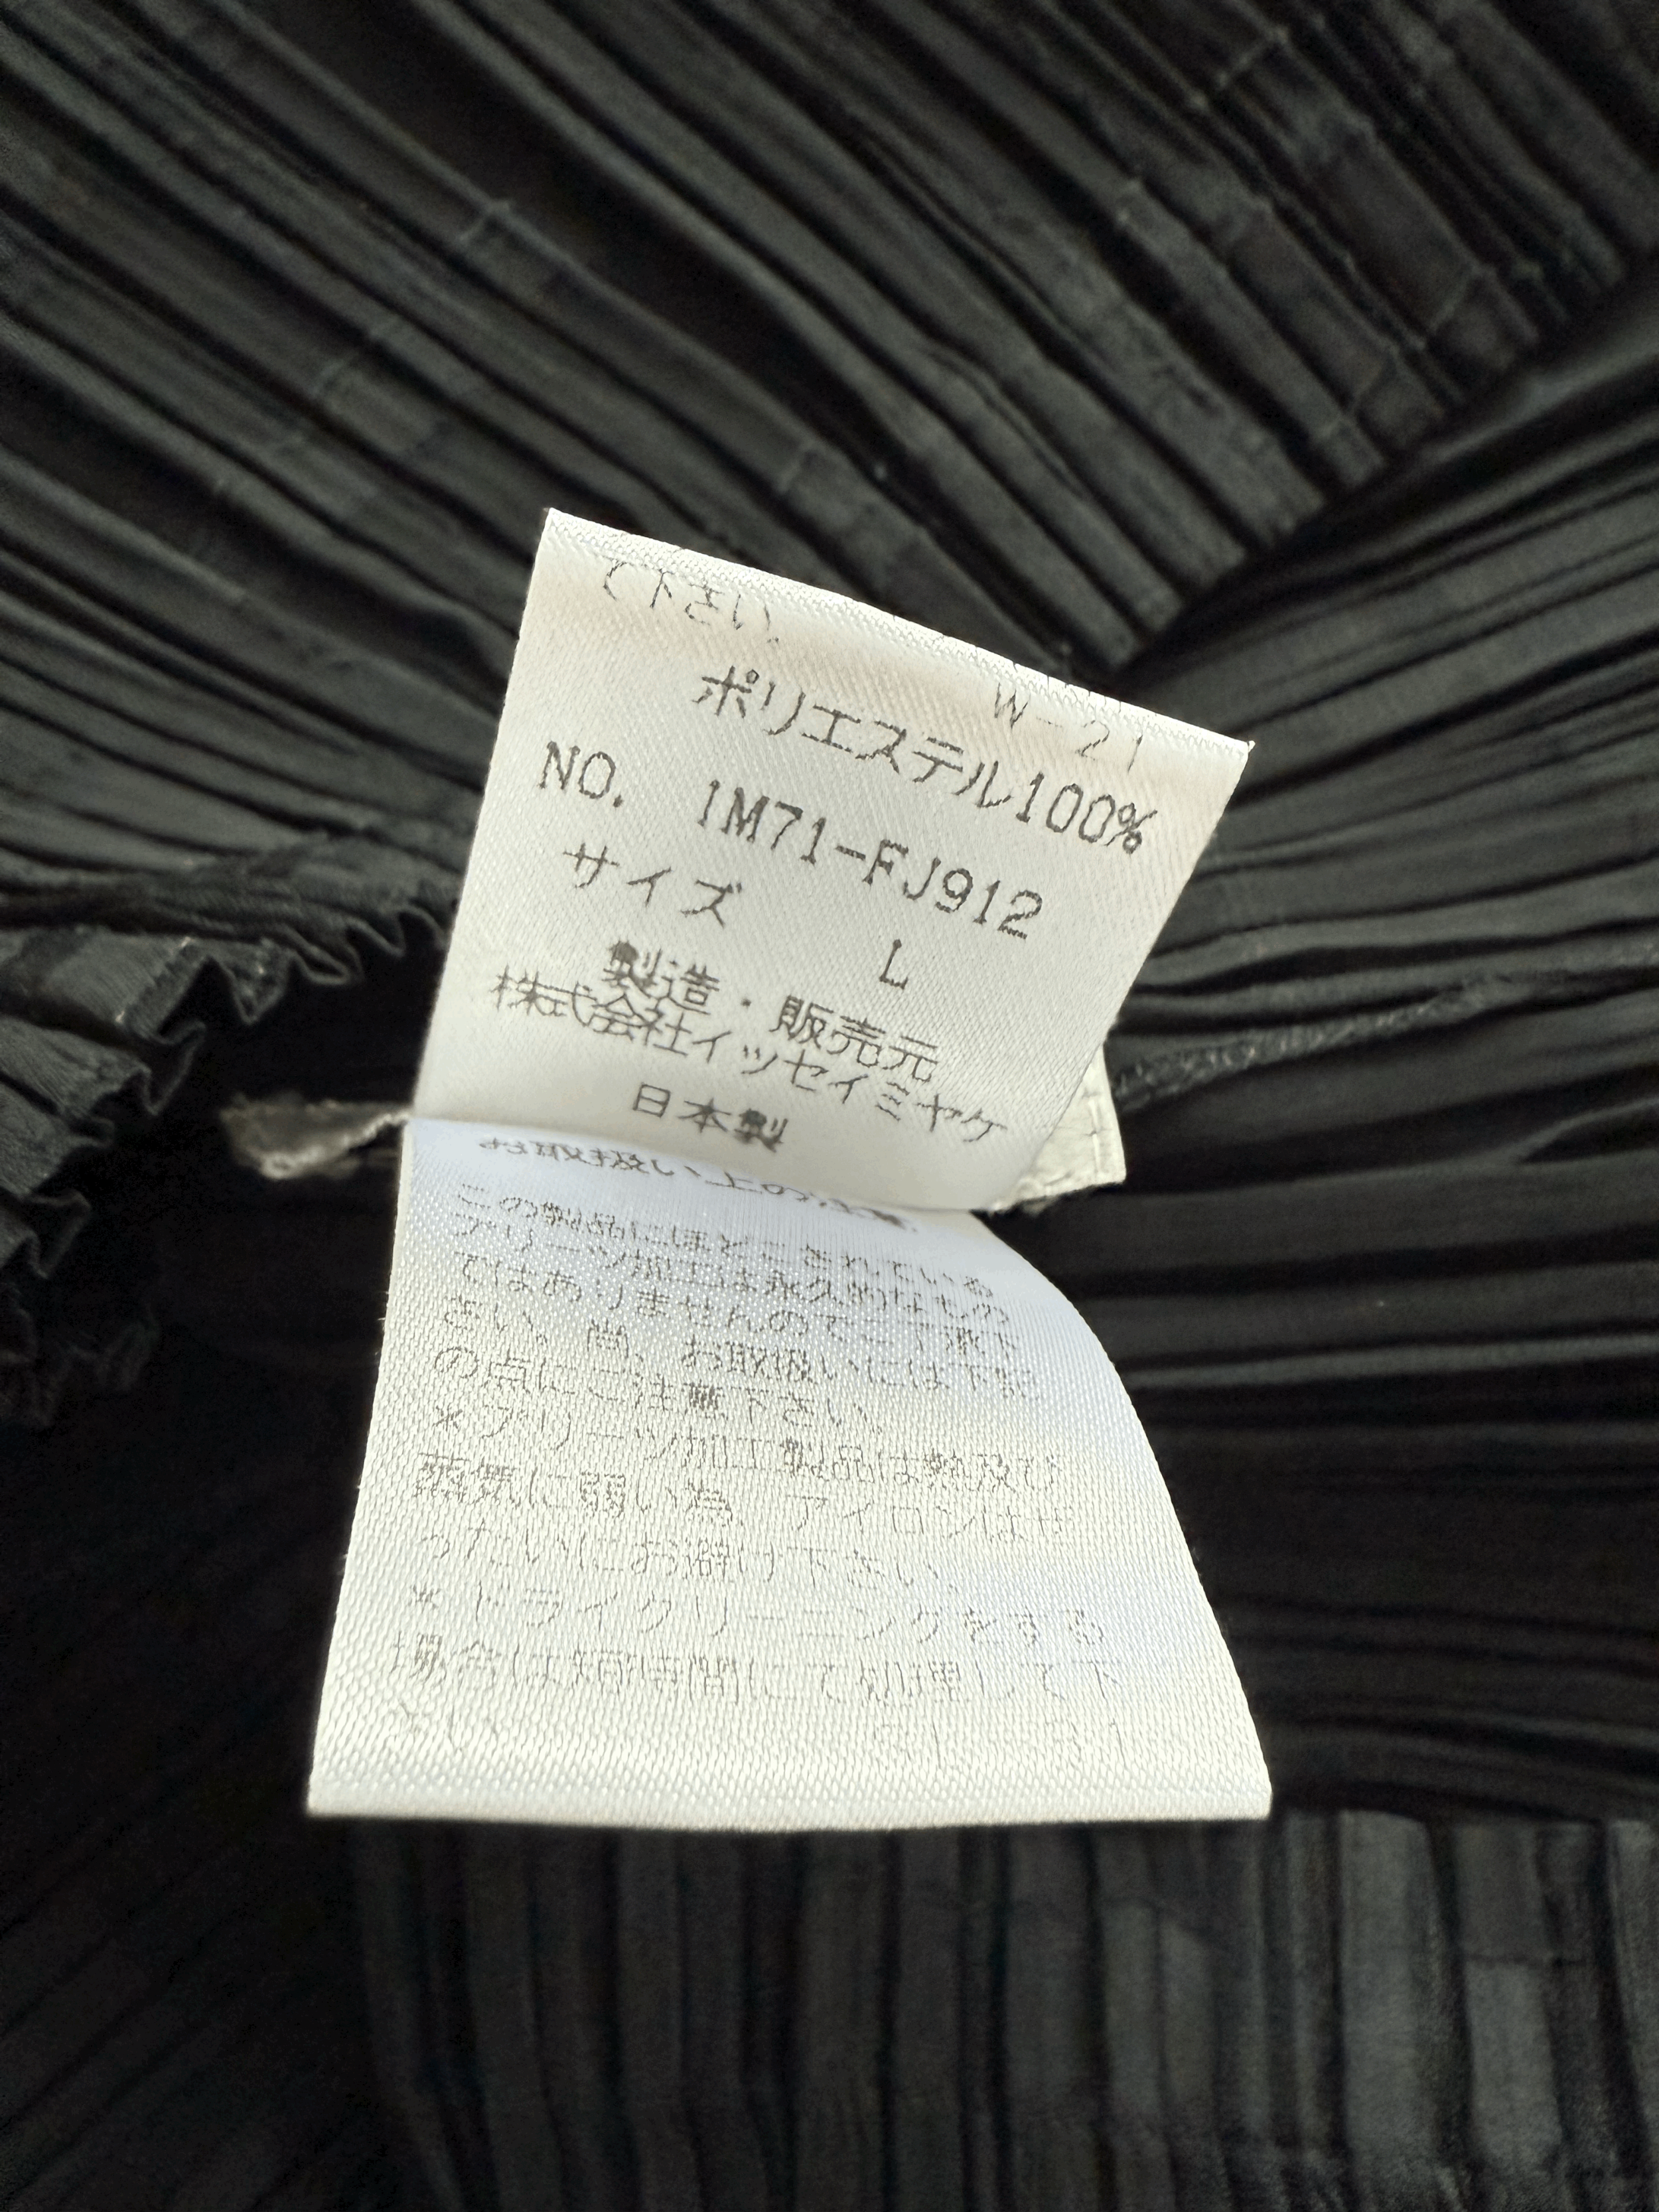 て下さい。
W-21
ポリエステル100%
NO. IM71-FJ912
サイズ L
製造・販売元
株式会社イッセイミヤケ
日本製
お取扱い上の注意
この製品にほどこされている
プリーツ加工は永久的なもの
ではありませんのでご了承下
さい。尚、お取扱いには下記
の点にご注意下さい。
*プリーツ加工製品は熱及び
蒸気に弱い為 アイロンはぜ
ったいにお避け下さい。
*ドライクリーニングをする
場合は短時間にて処理して下
さい。